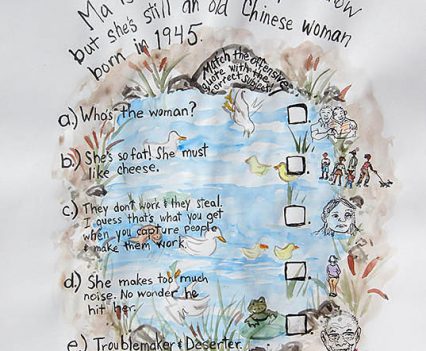 Ma is
ow
but she's still an old Chinese woman
born in 1945.
Match the offensive
quote with the
correct subject!
a.) Who's the woman?
b.) She's so fat! She must
like cheese.
c.) They don't work & they steal.
I guess that's what you get
when you capture people
& make them work.
d.) She makes too much
noise. No wonder he
hit her.
e.) Troublemaker & Deserter.